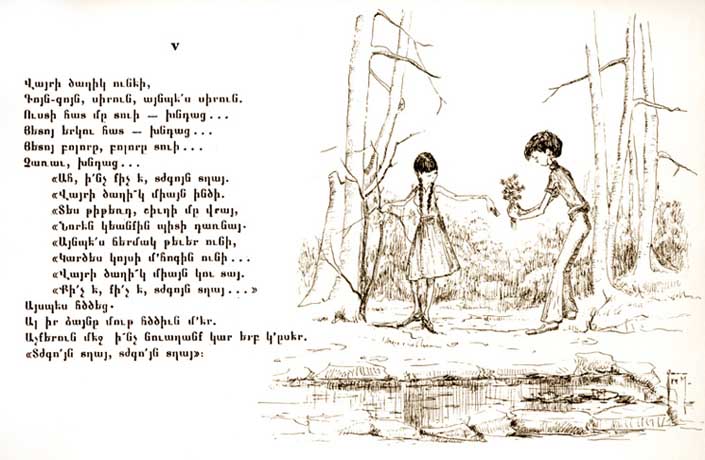 V
Վայրի ծաղիկ ունէի,
Գոյն-գոյն, սիրուն, այնպէ՛ս սիրուն.
Ուստի հատ մը տուի — խնդաց...
Յետոյ երկու հատ — խնդաց...
Յետոյ բոլորը, բոլորը տուի...
Չառաւ, խնդաց...
«Ահ, ի՛նչ քիչ է, տժգոյն տղայ.
«Վայրի ծաղի՞կ միայն ինծի.
«Տես թիթեռը, ծիւղի մը վրայ,
«Նորէն կեանքին պիտի դառնայ.
«Այնպէ՛ս ճերմակ թեւեր ունի,
«Կարծես կոյսի մ՚հոգին ունի...
«Վայրի ծաղի՞կ միայն կու տայ.
«Քի՛չ է, քի՛չ է, տժգոյն տղայ...»
Այսպէս հծծեց.
Ալ իր ձայնը մութ հծծիւն մ՚էր.
Աչքերուն մէջ ի՛նչ նուաղանք կար երբ կ՚ըսէր.
«Տժգո՛յն տղայ, տժգո՛յն տղայ»։